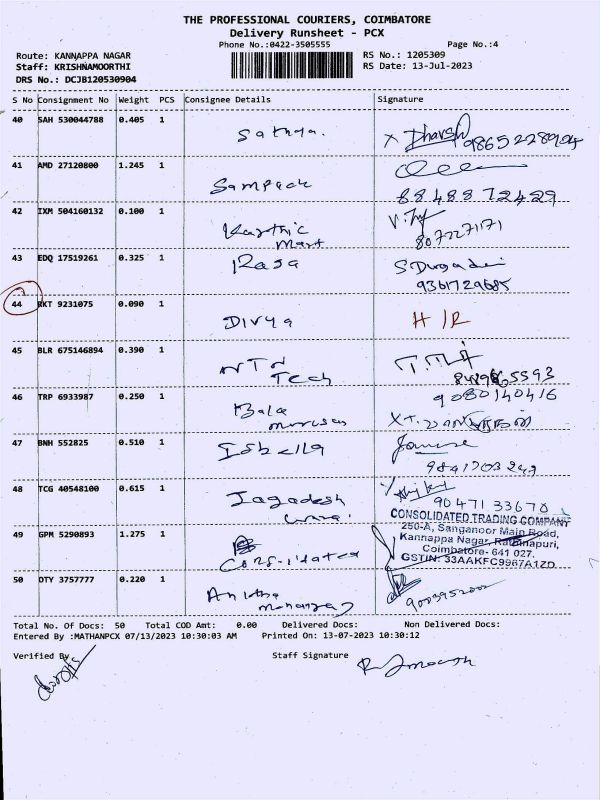 THE PROFESSIONAL COURIERS, COIMBATORE
Delivery Runsheet - PCX
Phone No.:0422-3505555 Page No.:4
Route: KANNAPPA NAGAR RS No.: 1205309
Staff: KRISHNAMOORTHI RS Date: 13-Jul-2023
DRS No.: DCJB120530904
S No Consignment No Weight PCS Consignee Details Signature
40 SAH 530044788 0.405 1
Sathya. x Dharsh 9865228904
41 AMD 27120800 1.245 1
Sampack 8848872429
42 IXM 504160132 0.100 1
Karthic
Mart 8072271171
43 EDQ 17519261 0.325 1
Rasa S Durgadevi
9361729685
44 RKT 9231075 0.090 1
Divya H/R
45 BLR 675146894 0.390 1
NTN
Tech
46 TRP 6933987 0.250 1 9080140416
Bala
47 BNH 552825 0.510 1
48 TCG 40548100 0.615 1
Jagadesh 9047133670
CONSOLIDATED TRADING COMPANY
49 GPM 5290893 1.275 1 250-A, Sanganoor Main Road,
Kannappa Nagar, Rathinapuri,
Coimbatore- 641 027.
GSTIN: 33AAKFC9967A1ZD
50 DTY 3757777 0.220 1
Anitha
Total No. Of Docs: 50 Total COD Amt: 0.00 Delivered Docs: Non Delivered Docs:
Entered By :MATHANPCX 07/13/2023 10:30:03 AM Printed On: 13-07-2023 10:30:12
Verified By Staff Signature